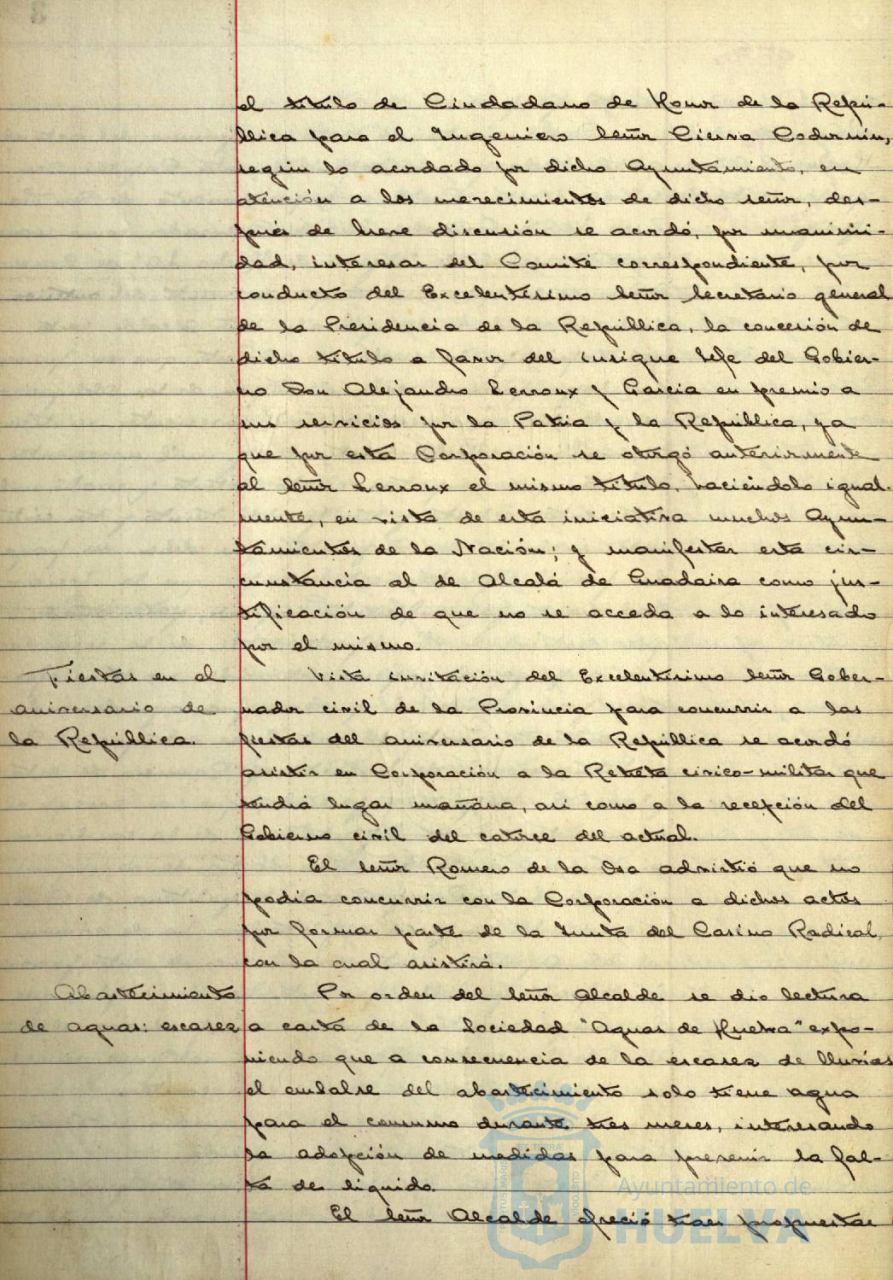 el título de Ciudadano de Honor de la Repú-
blica para el Ingeniero Señor Cierva Codorniu,
según lo acordado por dicho Ayuntamiento, en
atención a los merecimientos de dicho señor, des-
pués de breve discusión se acordó, por unanimi-
dad, interesar del Comité correspondiente, por
conducto del Excelentísimo Señor Secretario general
de la Presidencia de la República, la concesión de
dicho título a favor del insigne Jefe del Gobier-
no Don Alejandro Lerroux y García en premio a
sus servicios por la Patria y la República, ya
que por esta Corporación se otorgó anteriormente
al Señor Lerroux el mismo título, haciéndolo igual-
mente, en vista de esta iniciativa muchos Ayun-
tamientos de la Nación; y manifestar esta cir-
cunstancia al de Alcalá de Guadaira como jus-
tificación de que no se acceda a lo interesado
por el mismo.
Fiestas en el
aniversario de
la República.
Vista invitación del Excelentísimo Señor Gober-
nador civil de la Provincia para concurrir a las
fiestas del aniversario de la República se acordó
asistir en Corporación a la Retreta cívico-militar que
tendrá lugar mañana, así como a la recepción del
Gobierno civil del catorce del actual.
El Señor Romero de la Osa advirtió que no
podía concurrir con la Corporación a dichos actos
por formar parte de la Junta del Casino Radical,
con la cual asistirá.
Abastecimiento
de aguas: escasez
Por orden del Señor Alcalde se dio lectura
a carta de la Sociedad "Aguas de Huelva" expo-
niendo que a consecuencia de la escasez de lluvias
el embalse del abastecimiento solo tiene agua
para el consumo durante tres meses, interesando
la adopción de medidas para prevenir la fal-
ta de líquido.
El Señor Alcalde ofreció traer propuestas
Ayuntamiento de
HUELVA